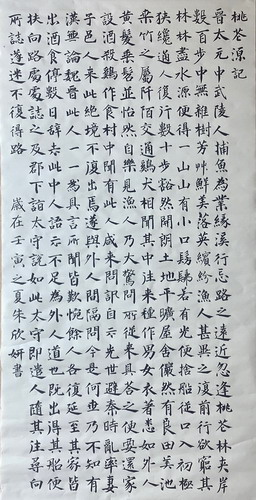 桃花源記
晉太元中武陵人捕魚為業緣溪行忘路之遠近忽逢桃花林夾岸
數百步中無雜樹芳艸鮮美落英繽紛漁人甚異之復前行欲窮其
林林盡水源便得一山山有小口髣髴若有光便捨船從口入初極
狹纔通人復行數十步豁然開朗土地平曠屋舍儼然有良田美池
桑竹之屬阡陌交通雞犬相聞其中往來種作男女衣著悉如外人
黃髮垂髫並怡然自樂見漁人乃大驚問所從來具答之便要還家
設酒殺雞作食村中聞有此人咸來問訊自云先世避秦時亂率妻
子邑人來此絕境不復出焉遂與外人間隔問今是何世乃不知有
漢無論魏晉此人一一為具言所聞皆歎惋餘人各復延至其家皆
出酒食停數日辭去此中人語云不足為外人道也既出得其船便
扶向路處處誌之及郡下詣太守說如此太守即遣人隨其往尋向
所誌遂迷不復得路 歲在壬寅之夏朱欣妍書